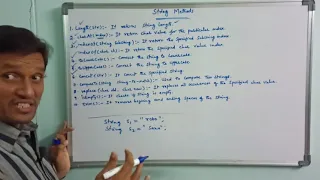 String Methods
1. length(str) :- It returns string length.
2. charAt(index) :- It return char value for the particular index.
3. indexOf(string substring) :- It returns the specified substring index.
indexOf(char ch) :- It return the specified char value index.
toLowerCase() :- Convert the string to lowercase
toUpperCase() :- Convert the string to uppercase
concat(str) :- It concat the specified string.
compareTo(string, string) :- Used to compare two strings.
replace(char old, char new) :- It replaces all occurrences of the specified char value.
isEmpty() :- It checks if string is empty.
trim() :- It removes beginning and ending spaces of the string.
String S1 =
String S2 =